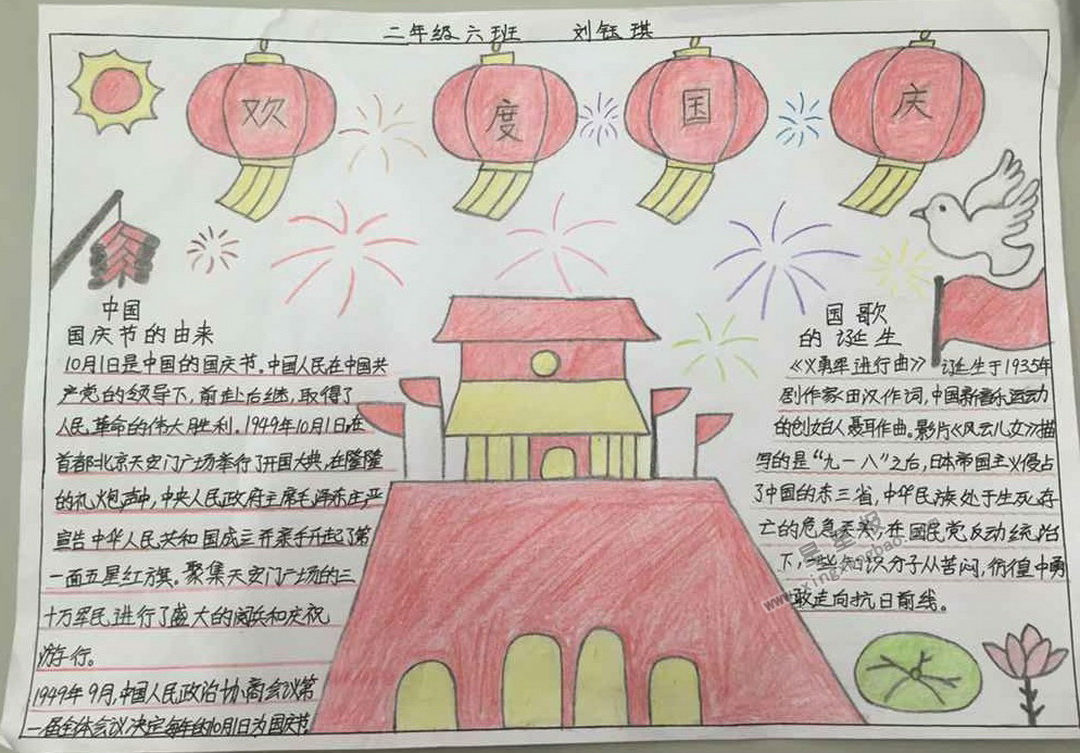 二年级六班 刘钰琪
欢度国庆
中国
国庆节的由来
10月1日是中国的国庆节。中国人民在中国共
产党的领导下，前赴后继，取得了
人民革命的伟大胜利。1949年10月1日在
首都北京天安门广场举行了开国大典，在隆隆
的礼炮声中，中央人民政府主席毛泽东庄严
宣告中华人民共和国成立并亲手升起了第
一面五星红旗。聚集天安门广场的三
十万军民进行了盛大的阅兵和庆祝
游行。
1949年9月，中国人民政治协商会议第
一届全体会议决定每年的10月1日为国庆节
国歌
的诞生
《义勇军进行曲》诞生于1935年
剧作家田汉作词，中国新音乐运动
的创始人聂耳作曲。影片《风云儿女》描
写的是“九一八”之后，日本帝国主义侵占
了中国的东三省，中华民族处于生死存
亡的危急关头，在国民党反动统治
下，一些知识分子从苦闷，彷徨中勇
敢走向抗日前线。
星星报
www.xingxingbao.